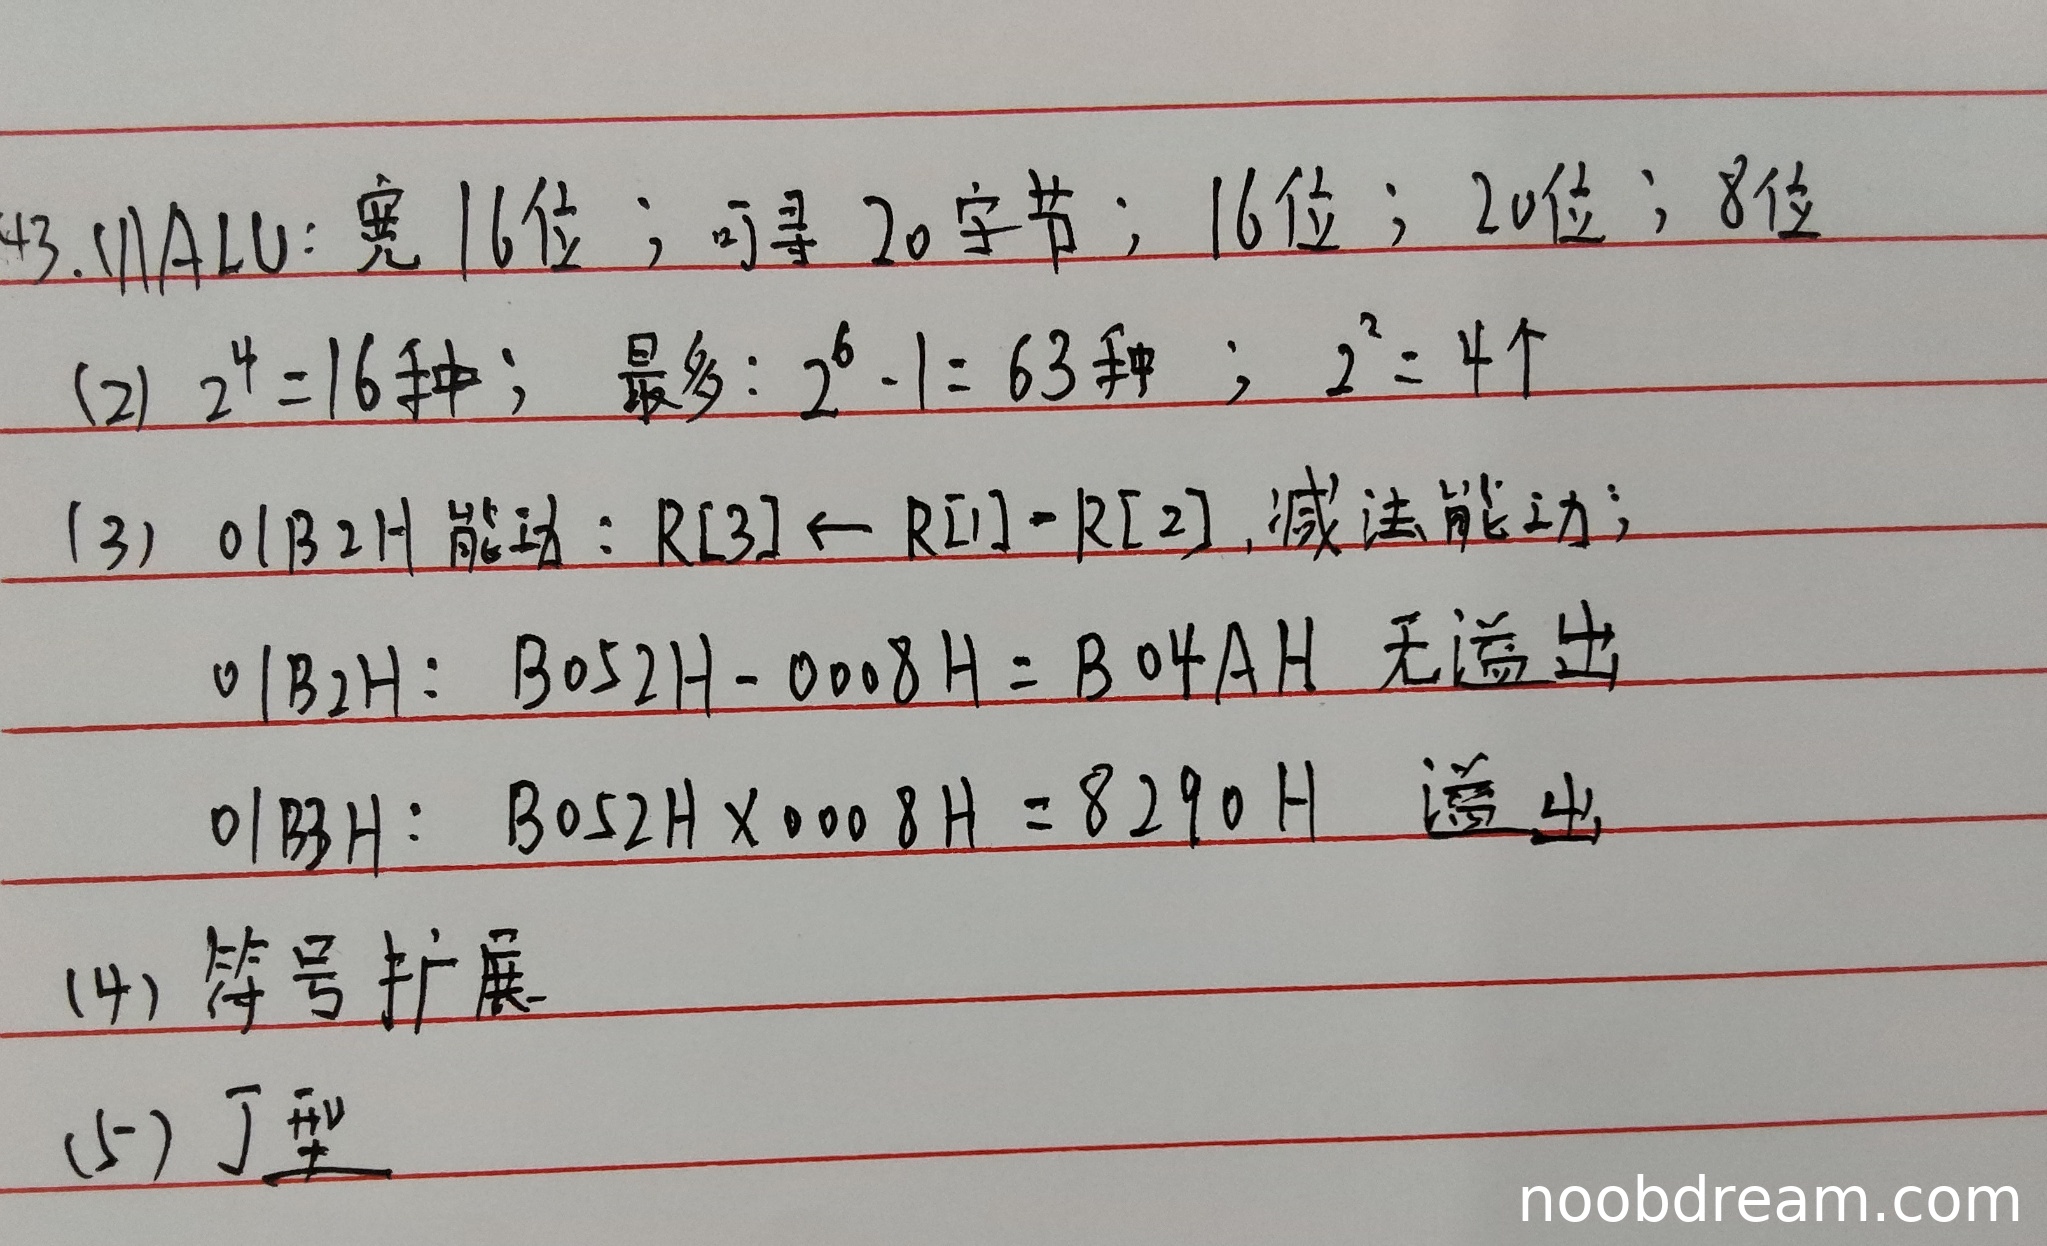 43.(1)ALU:宽16位;可寻20字节;16位;20位;8位
(2) 2⁴=16种; 最多:2⁶-1=63种 ; 2²=4个
(3) 01B2H能功:R[3]←R[1]-R[2],减法能功;
01B2H: B052H-0008H=B04AH 无溢出
01B3H: B052H×0008H=8290H 溢出
(4) 符号扩展
(5) J型
noobdream.com